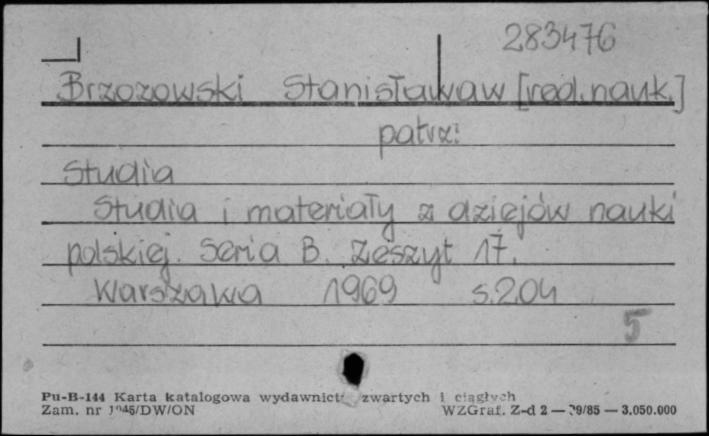 283476
Brzozowski Stanisławaw [red.nauk.]
patrz:
Studia
Studia i materiały z dziejów nauki
polskiej. Seria B. Zeszyt 17.
Warszawa 1969 s.204
5
Pu-B-144 Karta katalogowa wydawnict zwartych i ciągłych
Zam. nr /DW/ON WZGraf. Z-d 2 — 9/85 — 3.050.000